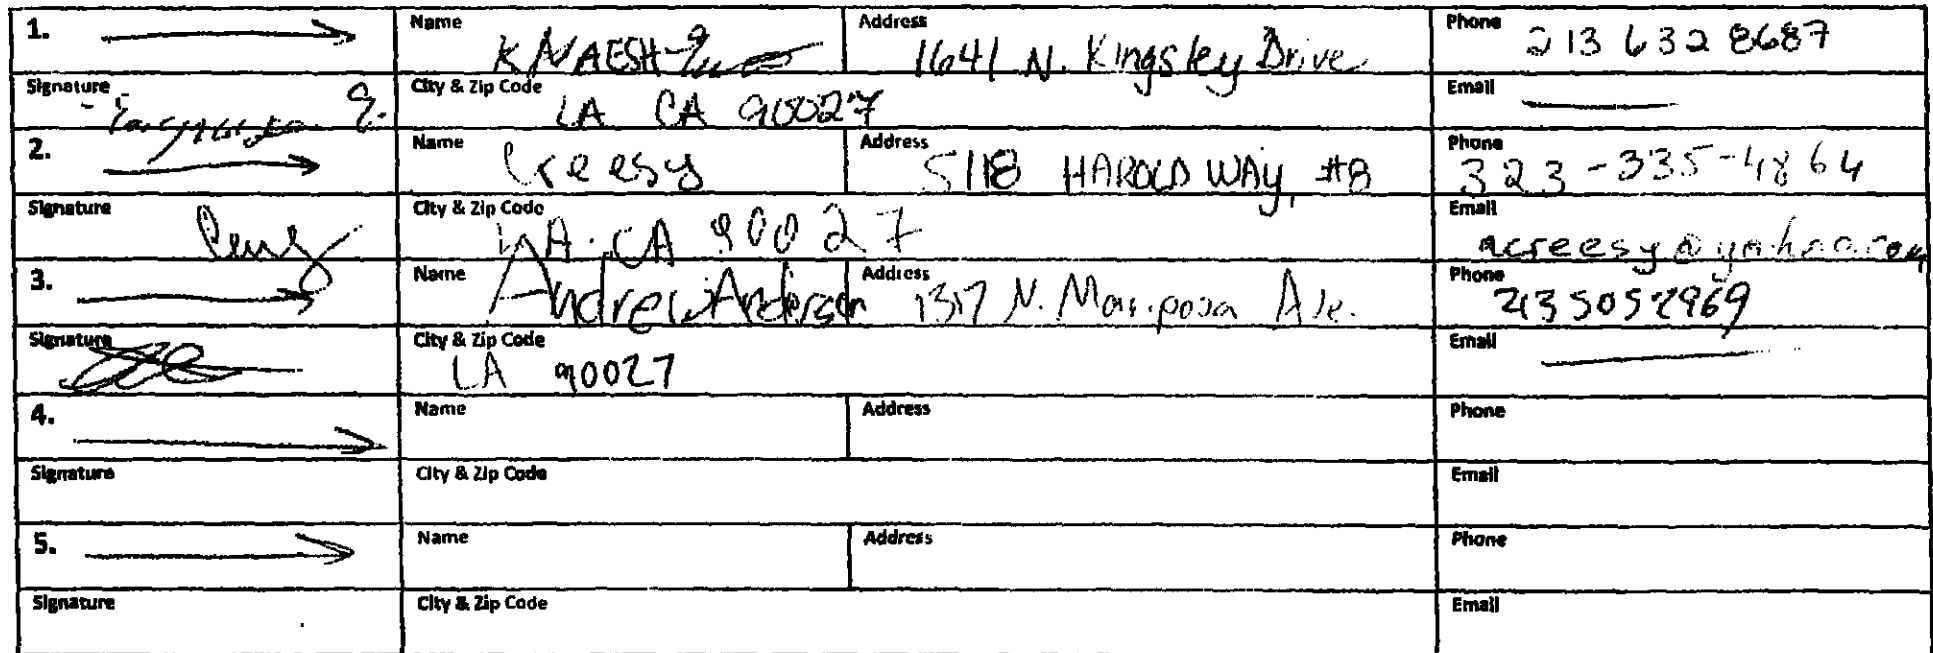 1. Name KNAESH Address 1641 N. Kingsley Drive Phone 213 632 8687
Signature City & Zip Code LA CA 90027 Email
2. Name Creesy Address 5118 HAROLD WAY, #8 Phone 323-335-4864
Signature City & Zip Code LA. CA 90027 Email acreesy@yahoo.com
3. Name Andrew Anderson Address 1317 N. Mariposa Ave. Phone 2135052969
Signature City & Zip Code LA 90027 Email
4. Name Address Phone
Signature City & Zip Code Email
5. Name Address Phone
Signature City & Zip Code Email